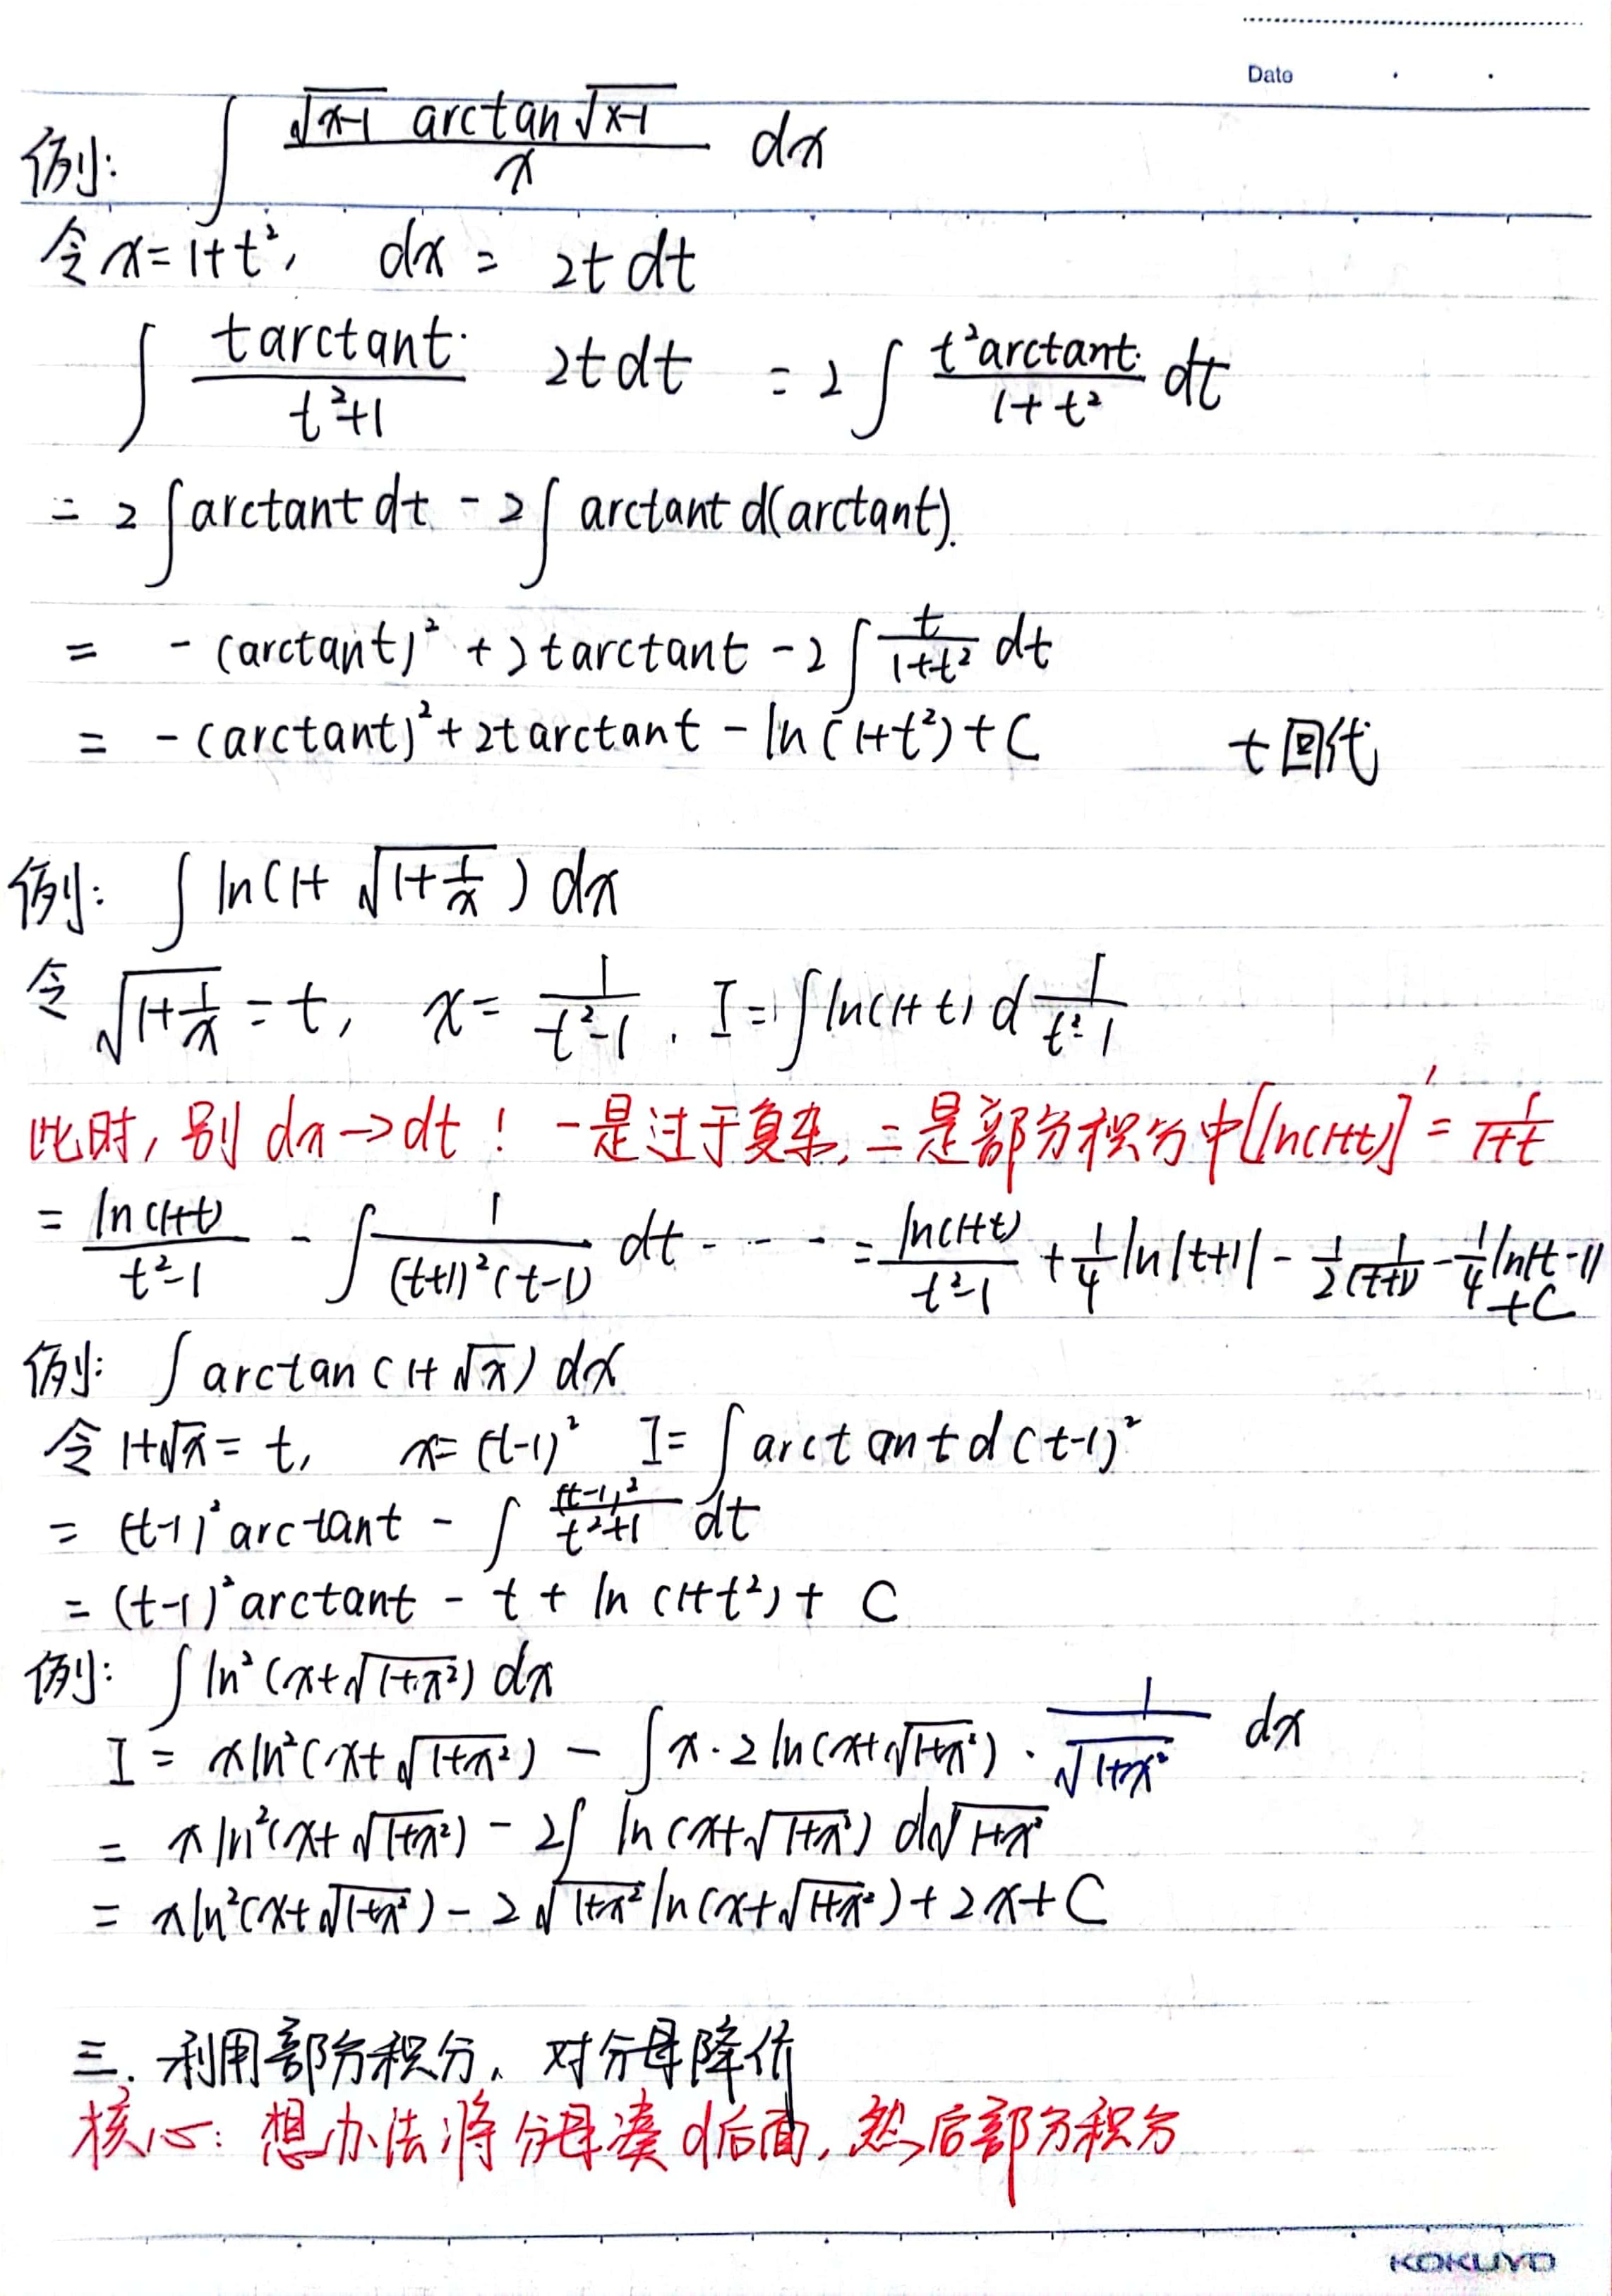 Date
例: ∫ √(x-1) arctan√(x-1) / x dx
令 x=1+t², dx = 2t dt
∫ t arctant / (t²+1) · 2t dt = 2∫ t² arctant / (1+t²) dt
= 2∫arctant dt - 2∫ arctant d(arctant).
= -(arctant)² + 2t arctant - 2∫ t/(1+t²) dt
= -(arctant)² + 2t arctant - ln(1+t²) + C t回代
例: ∫ ln(1+ √(1+1/x)) dx
令 √(1+1/x) = t, x = 1/(t²-1). I = ∫ln(1+t) d 1/(t²-1)
此时, 别 dx→dt! 一是过于复杂, 二是部分积分中[ln(1+t)]' = 1/(1+t)
= ln(1+t)/(t²-1) - ∫ 1/((t+1)²(t-1)) dt - - - = ln(1+t)/(t²-1) + 1/4 ln|t+1| - 1/2 1/(t+1) - 1/4 ln|t-1| + C
例: ∫ arctan(1+√x) dx
令 1+√x = t, x=(t-1)² I = ∫ arctant d(t-1)²
= (t-1)² arctant - ∫ (t-1)²/(t²+1) dt
= (t-1)² arctant - t + ln(1+t²) + C
例: ∫ ln²(x+√(1+x²)) dx
I = x ln²(x+√(1+x²)) - ∫ x·2 ln(x+√(1+x²)) · 1/√(1+x²) dx
= x ln²(x+√(1+x²)) - 2∫ ln(x+√(1+x²)) d√(1+x²)
= x ln²(x+√(1+x²)) - 2√(1+x²) ln(x+√(1+x²)) + 2x + C
三. 利用部分积分, 对分母降价
核心: 想办法将分母凑d后面, 然后部分积分
KOKUYO